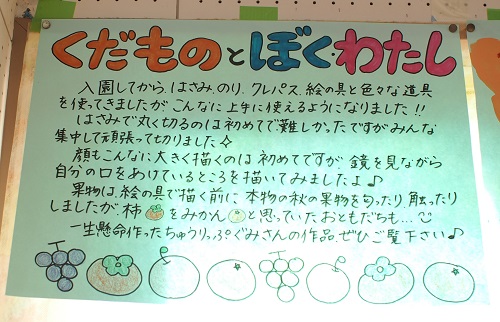 くだものとぼく・わたし
入園してから、はさみ、のり、クレパス、絵の具と色々な道具
を使ってきましたが、こんなに上手に使えるようになりました!!
はさみで丸く切るのは初めてで、難しかったですがみんな
集中して頑張って切りました✧
顔もこんなに大きく描くのは初めてですが、鏡を見ながら
自分の口をあけているところを描いてみましたよ♪
果物は、絵の具で描く前に、本物の秋の果物を匂ったり、触ったり
しましたが、柿をみかんと思っていたおともだちも…
一生懸命作ったちゅうりっぷぐみさんの作品、ぜひご覧下さい♪